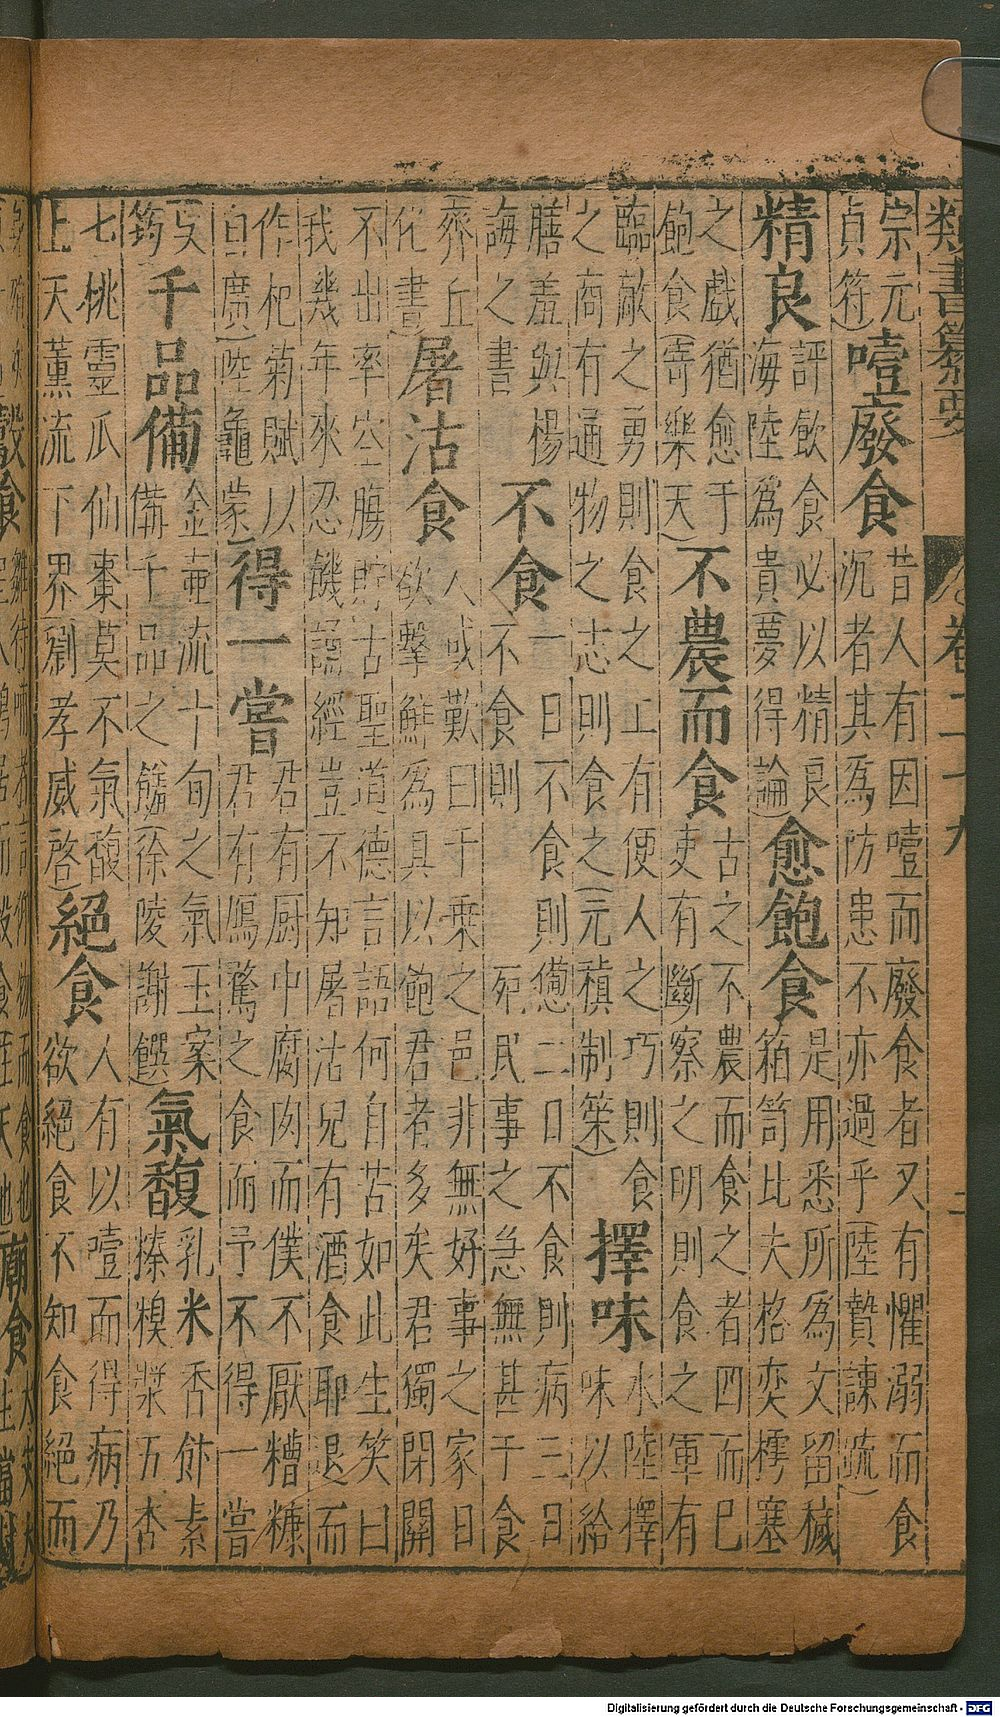 類書纂要 卷二十九 二
宗元
貞符)
噎廢食
昔人有因噎而廢食者又有懼溺而食
沉者其為防患不亦過乎(陸贄諫疏)
精良
評飲食必以精良
海陸爲貴(夢得論)
愈飽食
是用悉所為文留穢
箱笥比夫格奕樗塞
之戲猶愈于
飽食(寄樂天)
不農而食
古之不農而食之者四而已
吏有斷察之明則食之軍有
臨敵之勇則食之工有便人之巧則食
之商有通物之志則食之(元稹制策)
擇味
水陸擇
味以給
膳羞與楊
誨之書
不食
一日不食則憊二日不食則病三日
不食則死民事之急無甚于食
齊丘
化書)
屠沽食
人或歎曰于乘之邑非無好事之家日
欲擊鮮為具以飽君者多矣君獨閉關
不出率空腸貯古聖道德言語何自苦如此生笑曰
我幾年來忍饑誦經豈不知屠沽兒有酒食耶退而
作杞菊賦以
自廣(陸龜蒙)
得一嘗
君有厨中腐肉而僕不厭糟糠
君有鴈鶩之食而予不得一嘗
吴
筠
千品備
金壷流十旬之氣玉案
備千品之饍(徐陵謝饌)
氣馥
乳米香餅素
榛糗漿五杏
七桃靈瓜仙棗莫不氣馥
上天薫流下界(劉孝威啓)
絕食
人有以噎而得病乃
欲絕食不知食絕而
Digitalisierung gefördert durch die Deutsche Forschungsgemeinschaft - DFG